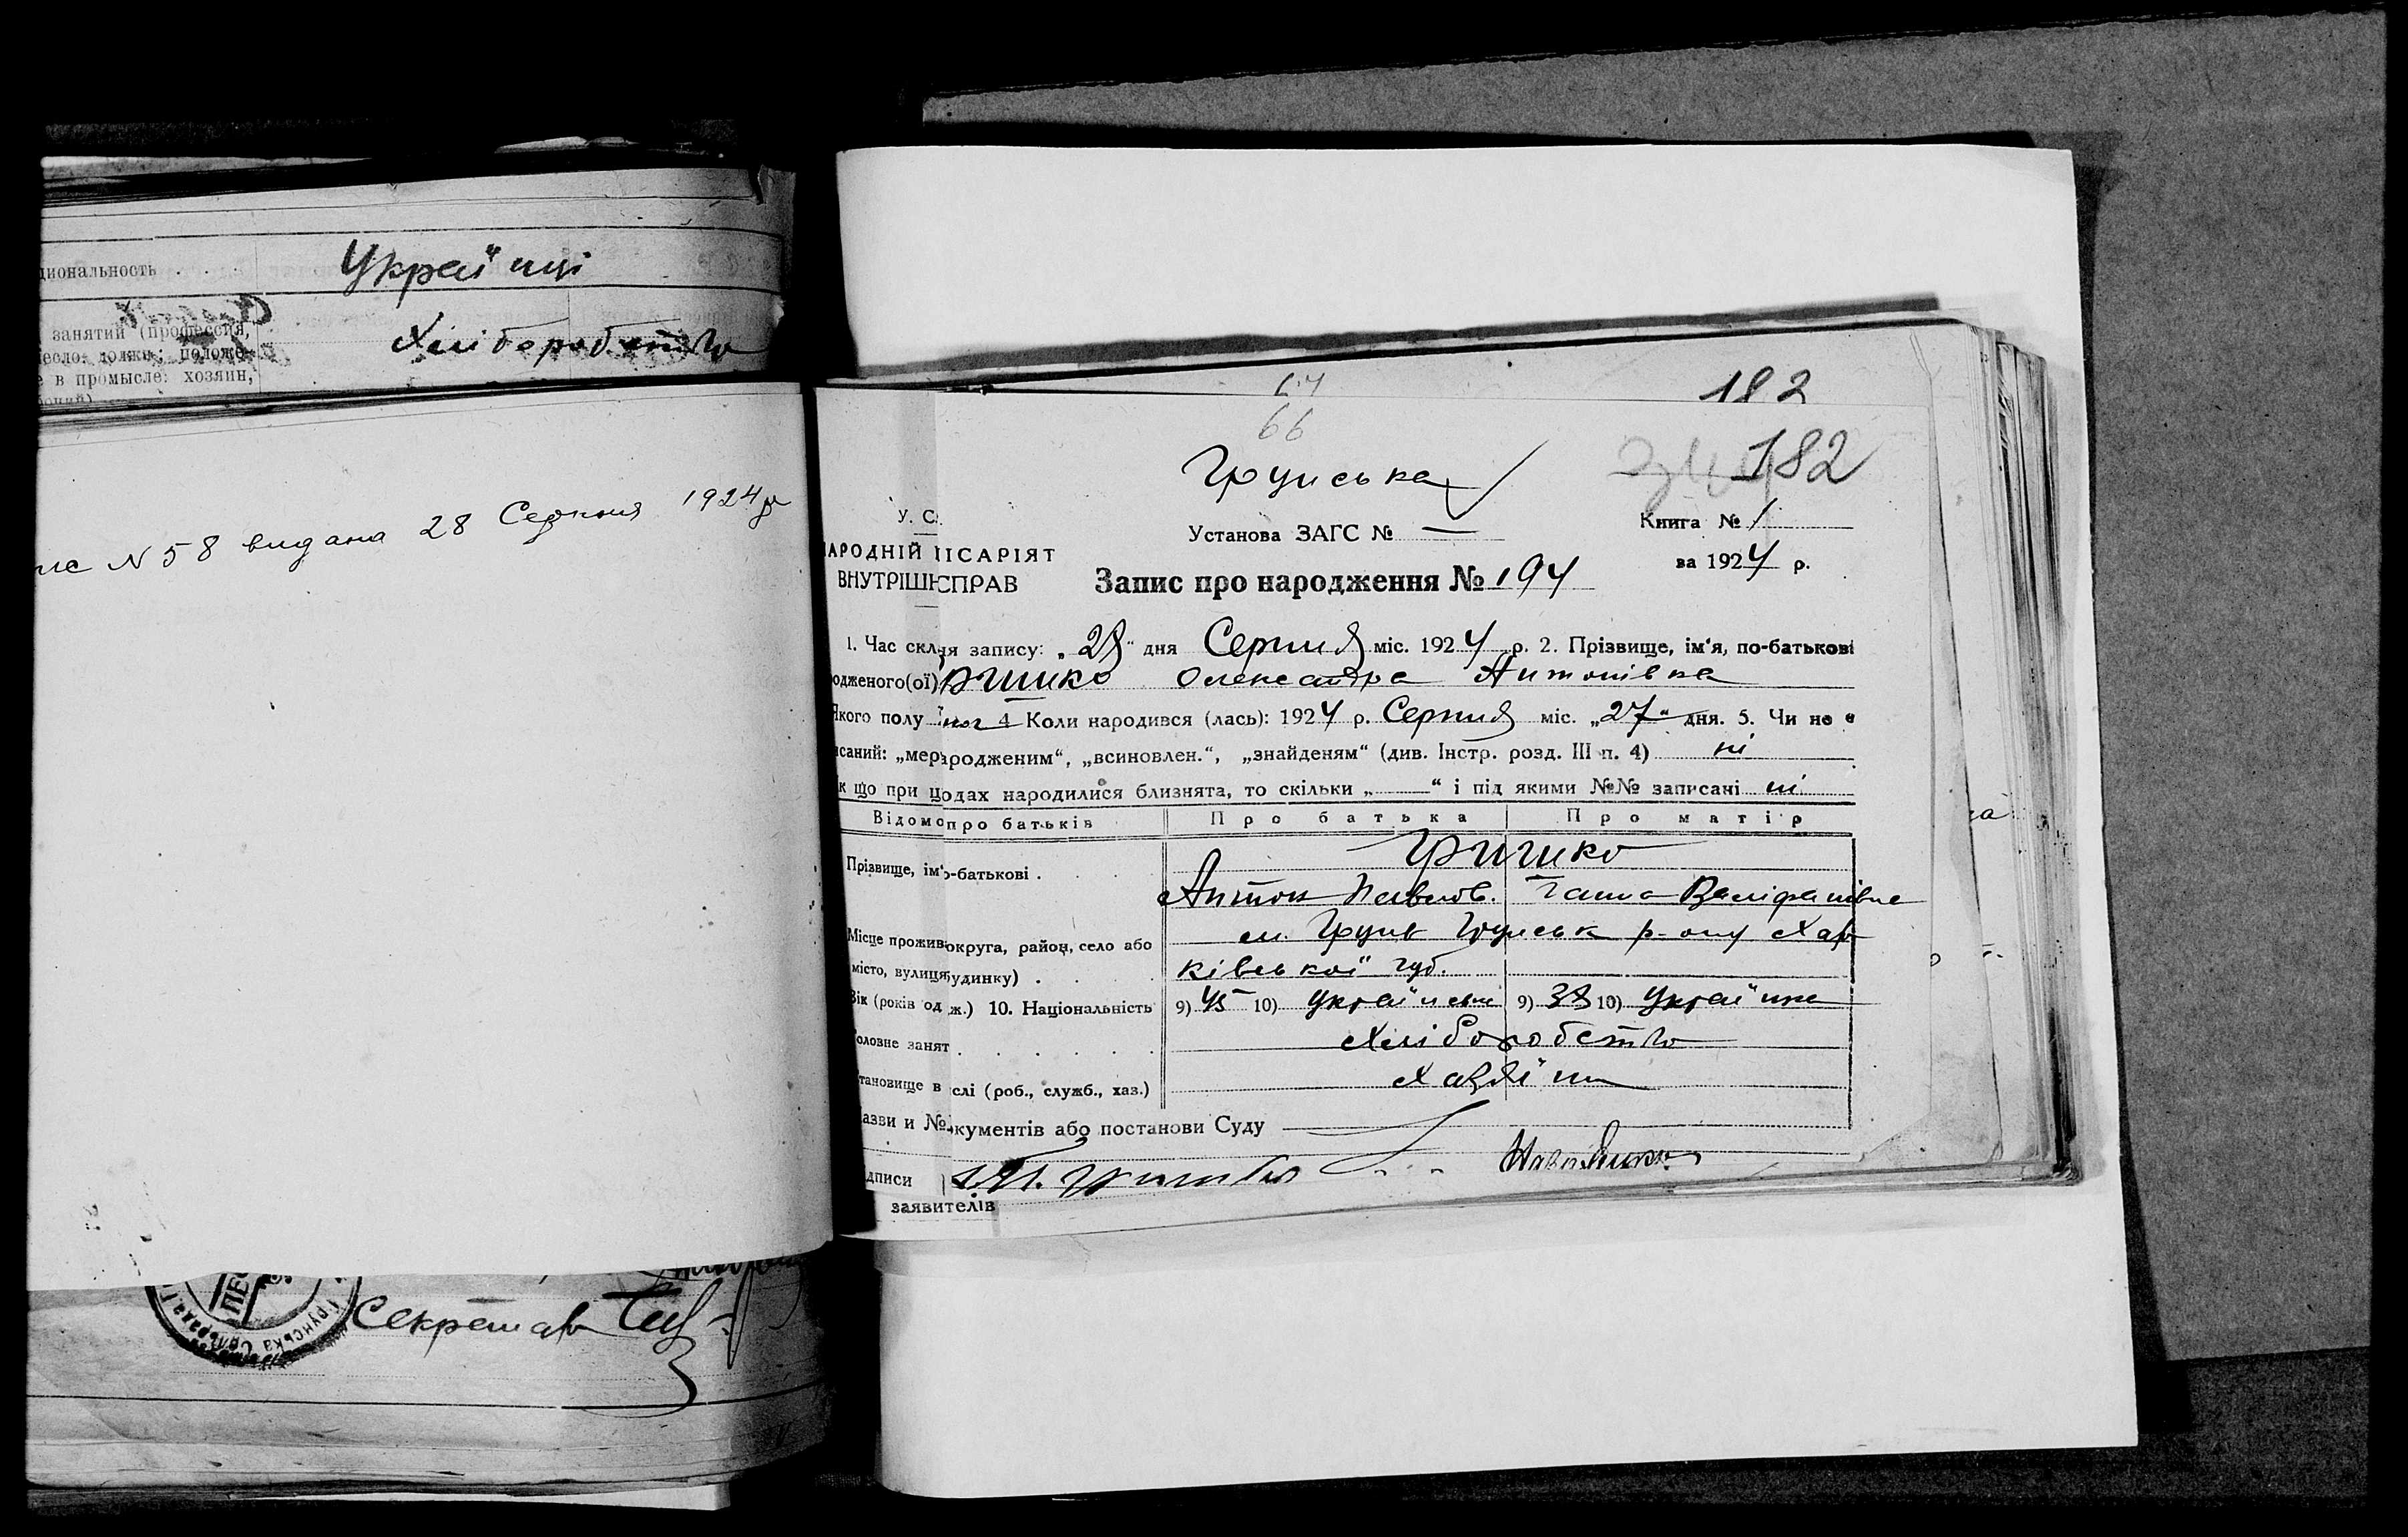 циональность . . .
Українці
занятий (профессия,
ремесло; должн.; положе-
е в промысле: хозяин,
Хліборобство
N 58 видана 28 Серпня 1924 р
Секретар
Грунська
182
64
66
Грунська
182
У. С.
Установа ЗАГС № —
Книга № 1
НАРОДНІЙ ІСАРІЯТ
за 1924 р.
ВНУТРІШН СПРАВ
Запис про народження № 194
1. Час скл ня запису: „28“ дня Серпня міс. 1924 р. 2. Прізвище, ім'я, по-батькові
родженого(ої) Гришко Олександра Антонівна
Якого полу 4 Коли народився (лась): 1924 р. Серпня міс. „27“ дня. 5. Чи не є
исаний: „мер родженим“, „всиновлен.“, „знайденям“ (див. Інстр. розд. III п. 4) ні
к що при ц одах народилися близнята, то скільки „——“ і під якими №№ записані ні
Відомо про батьків
Про батька
Про матір
Гришко
Прізвище, ім' о-батькові .
Антон Павлов.
Місце прожив округа, район, село або
с. Грунь Грунськ р-ону Хар
місто, вулиця будинку) .
ківської губ.
Вік (років од ж.) 10. Національність
9) 45 10) Українець
9) 38 10) Українка
оловне занят . . . . . .
Хліборобство
тановище в слі (роб., служб., хаз.)
Хазяїн
азви и № окументів або постанови Суду
дписи
заявителів